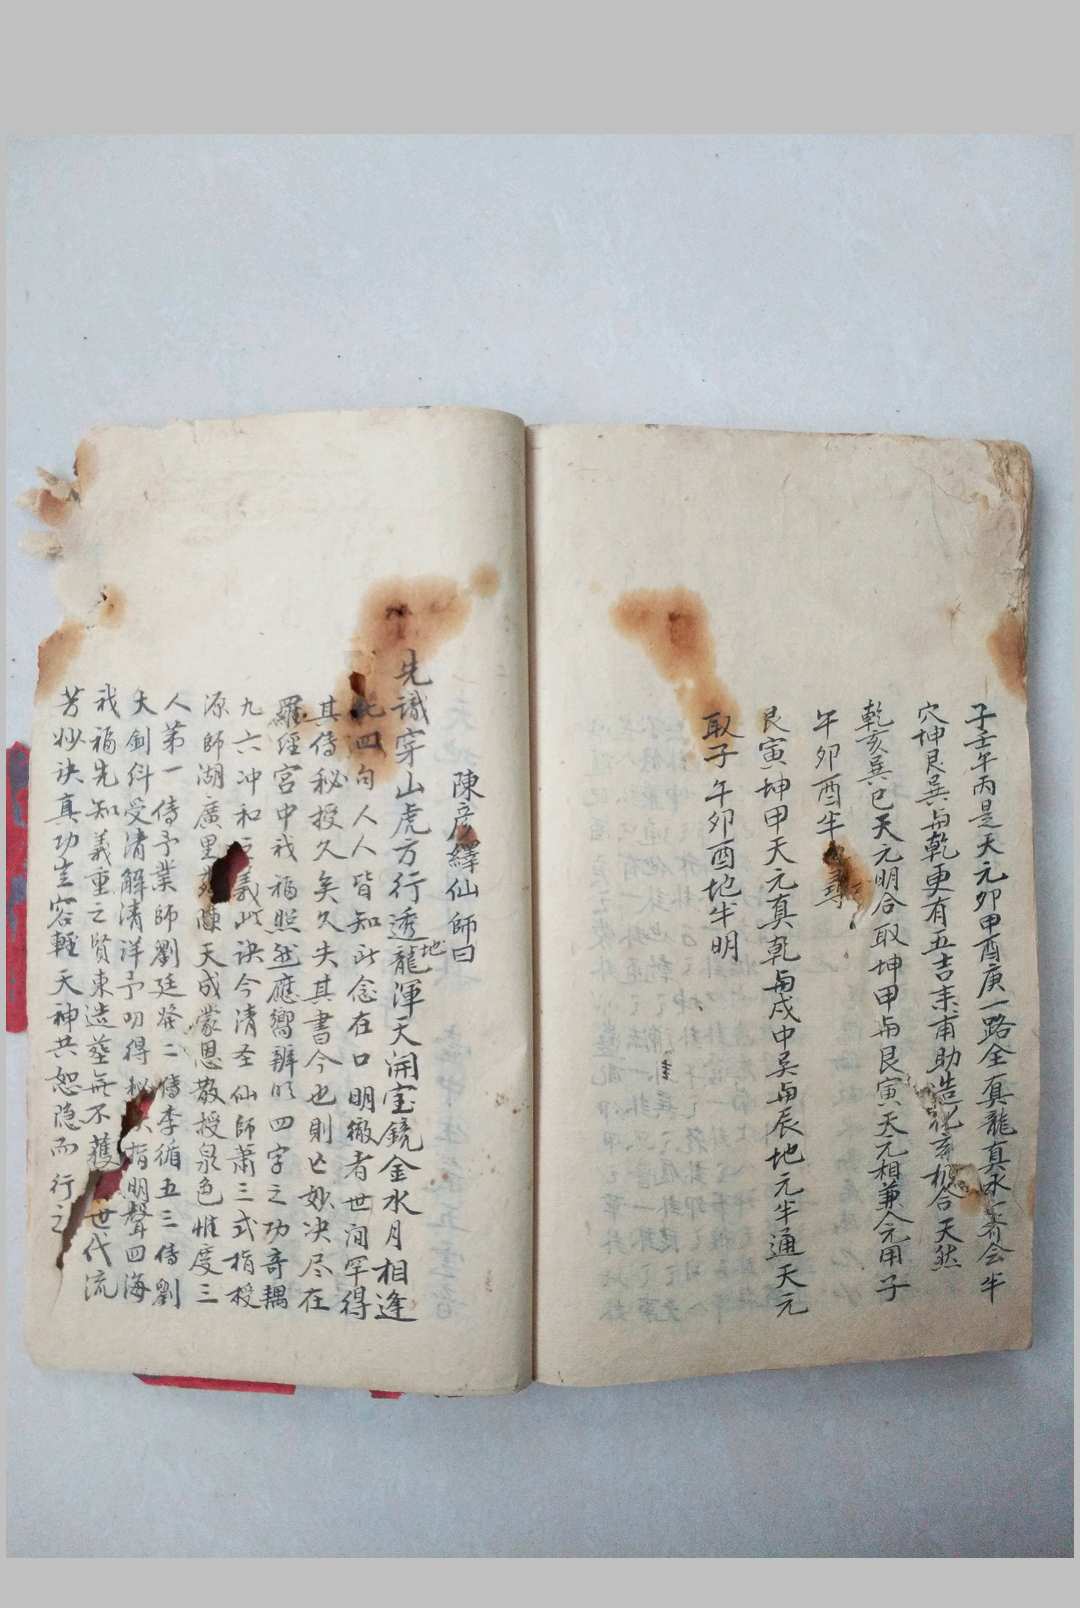 子壬午丙是天元卯甲酉庚一路全真龍真水斉会半
穴坤艮巽与乾更有五吉来甫助造化合天然
乾亥巽巳天元明合取坤甲与艮寅天元相兼合用子
午卯酉半尋
艮寅坤甲天元真乾与戌中吴与辰地元半通天元
取子午卯酉地半明
陳彦繹仙師曰
先識穿山虎方行透地龍渾天開宝鏡金水月相逢
此四句人人皆知此念在口明徹者世间罕得
其傳秘授久矣久失其書今也則亡妙决尽在
羅經宮中我福照然應嚮辨明四字之功奇耦
九六冲和義此訣今清圣仙師蕭三式指授
源師湖廣里陳天成蒙恩敎授泉色惟度三
人第一傳予業師劉廷二傳李循五三傳劉
天釗斜受清解清洋予叨得秘指明聲四海
我福先知義重之賢東造塋無不獲世代流
芳妙诀真功岂容輕天神共恕隐而行之